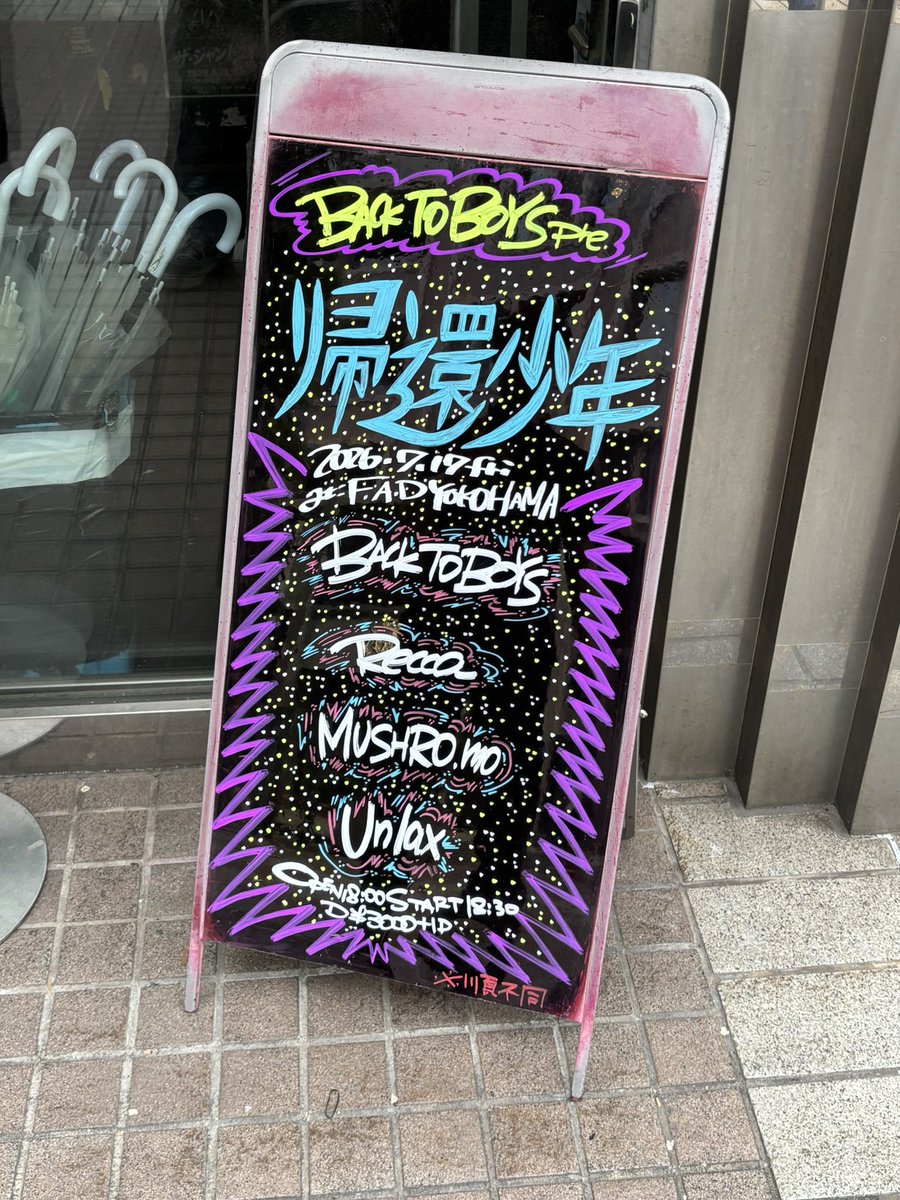 BACK TO BOYS Pre.
帰還少年
2026.7.17.Fri
at F.A.D YOKOHAMA
BACK TO BOYS
Recca
MUSHRO.mo
Unlax
OPEN18:00 START 18:30
D¥3000+1D
※順不同